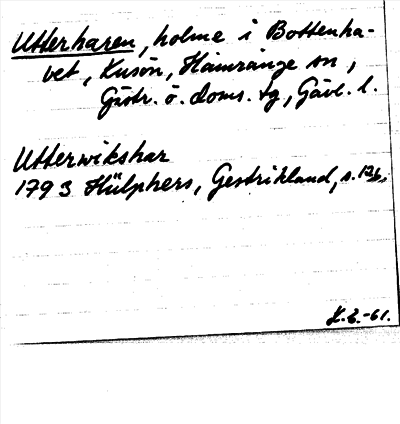 Utterharen, holme i Bottenha-
vet, Kusön, Hamrånge sn,
Gästr. ö. doms. tg, Gävl. l.
Utterwikshar
1793 Hülphers, Gestrikland, s.
-61.